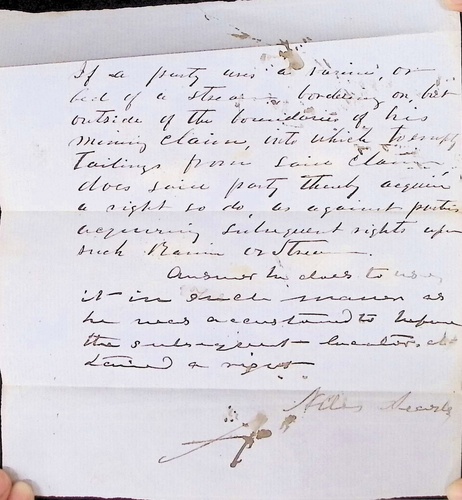 If a party uses a ravine, or
bed of a stream bordering on, but
outside of the boundaries of his
mining claim, into which to empty
Tailings from said claim,
does said party thereby acquire
a right so do, as against parties
acquiring subsequent rights upon
such Ravine or Stream.
Answer he does to use,
it in such maner as
he was accustomed to before
the subsequent locators ob
tained a right
Niles Searls